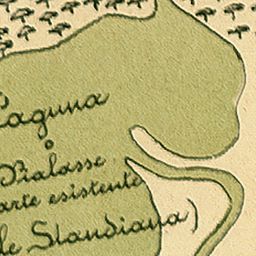 Laguna
o
Pialasse
arte esistente
le Standiana)